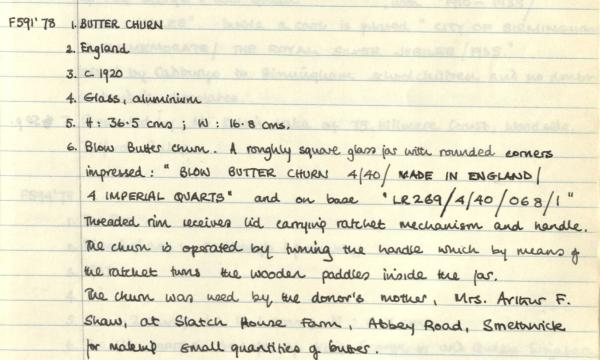 F591'78 1. BUTTER CHURN
2. England
3. c. 1920
4. Glass, aluminium
5. H: 36.5 cms ; W: 16.8 cms.
6. Blow Butter churn. A roughly square glass jar with rounded corners
impressed: "BLOW BUTTER CHURN 4/40/ MADE IN ENGLAND/
4 IMPERIAL QUARTS" and on base "LR269/4/40/068/1"
Threaded rim receives lid carrying ratchet mechanism and handle.
The churn is operated by turning the handle which by means of
the ratchet turns the wooden paddles inside the jar.
The churn was used by the donor's mother, Mrs. Arthur F.
Shaw, at Slatch House Farm, Abbey Road, Smethwick
for making small quantities of butter.